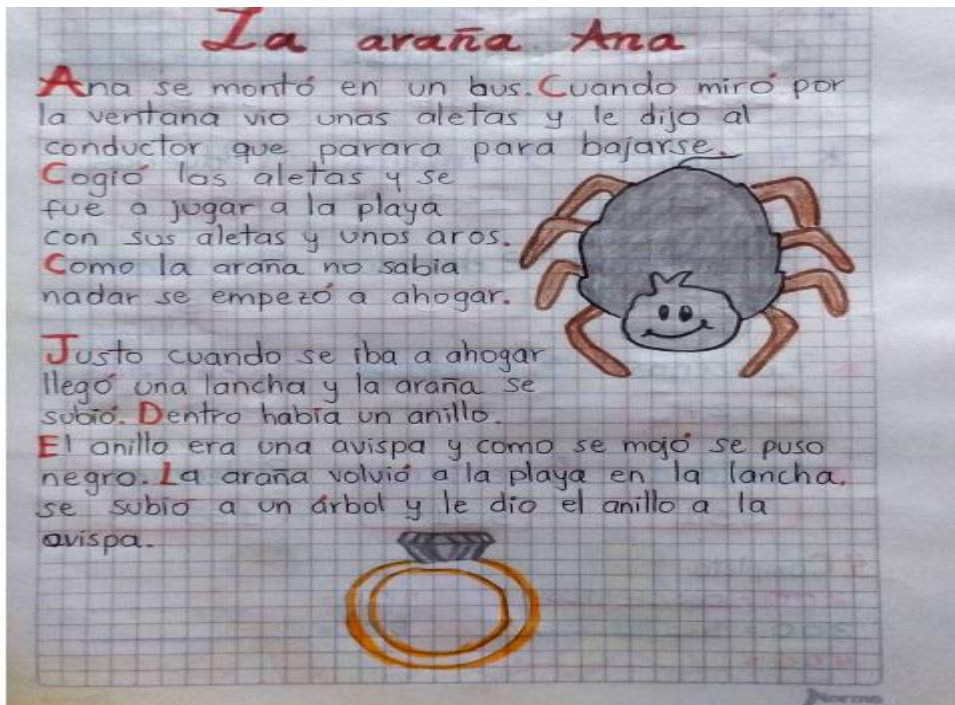 La araña Ana
Ana se montó en un bus. Cuando miró por
la ventana vio unas aletas y le dijo al
conductor que parara para bajarse.
Cogió las aletas y se
fue a jugar a la playa
con sus aletas y unos aros.
Como la araña no sabia
nadar se empezó a ahogar.
Justo cuando se iba a ahogar
llegó una lancha y la araña se
subió. Dentro había un anillo.
El anillo era una avispa y como se mojó se puso
negro. La araña volvió a la playa en la lancha.
se subio a un árbol y le dio el anillo a la
avispa.
Norma